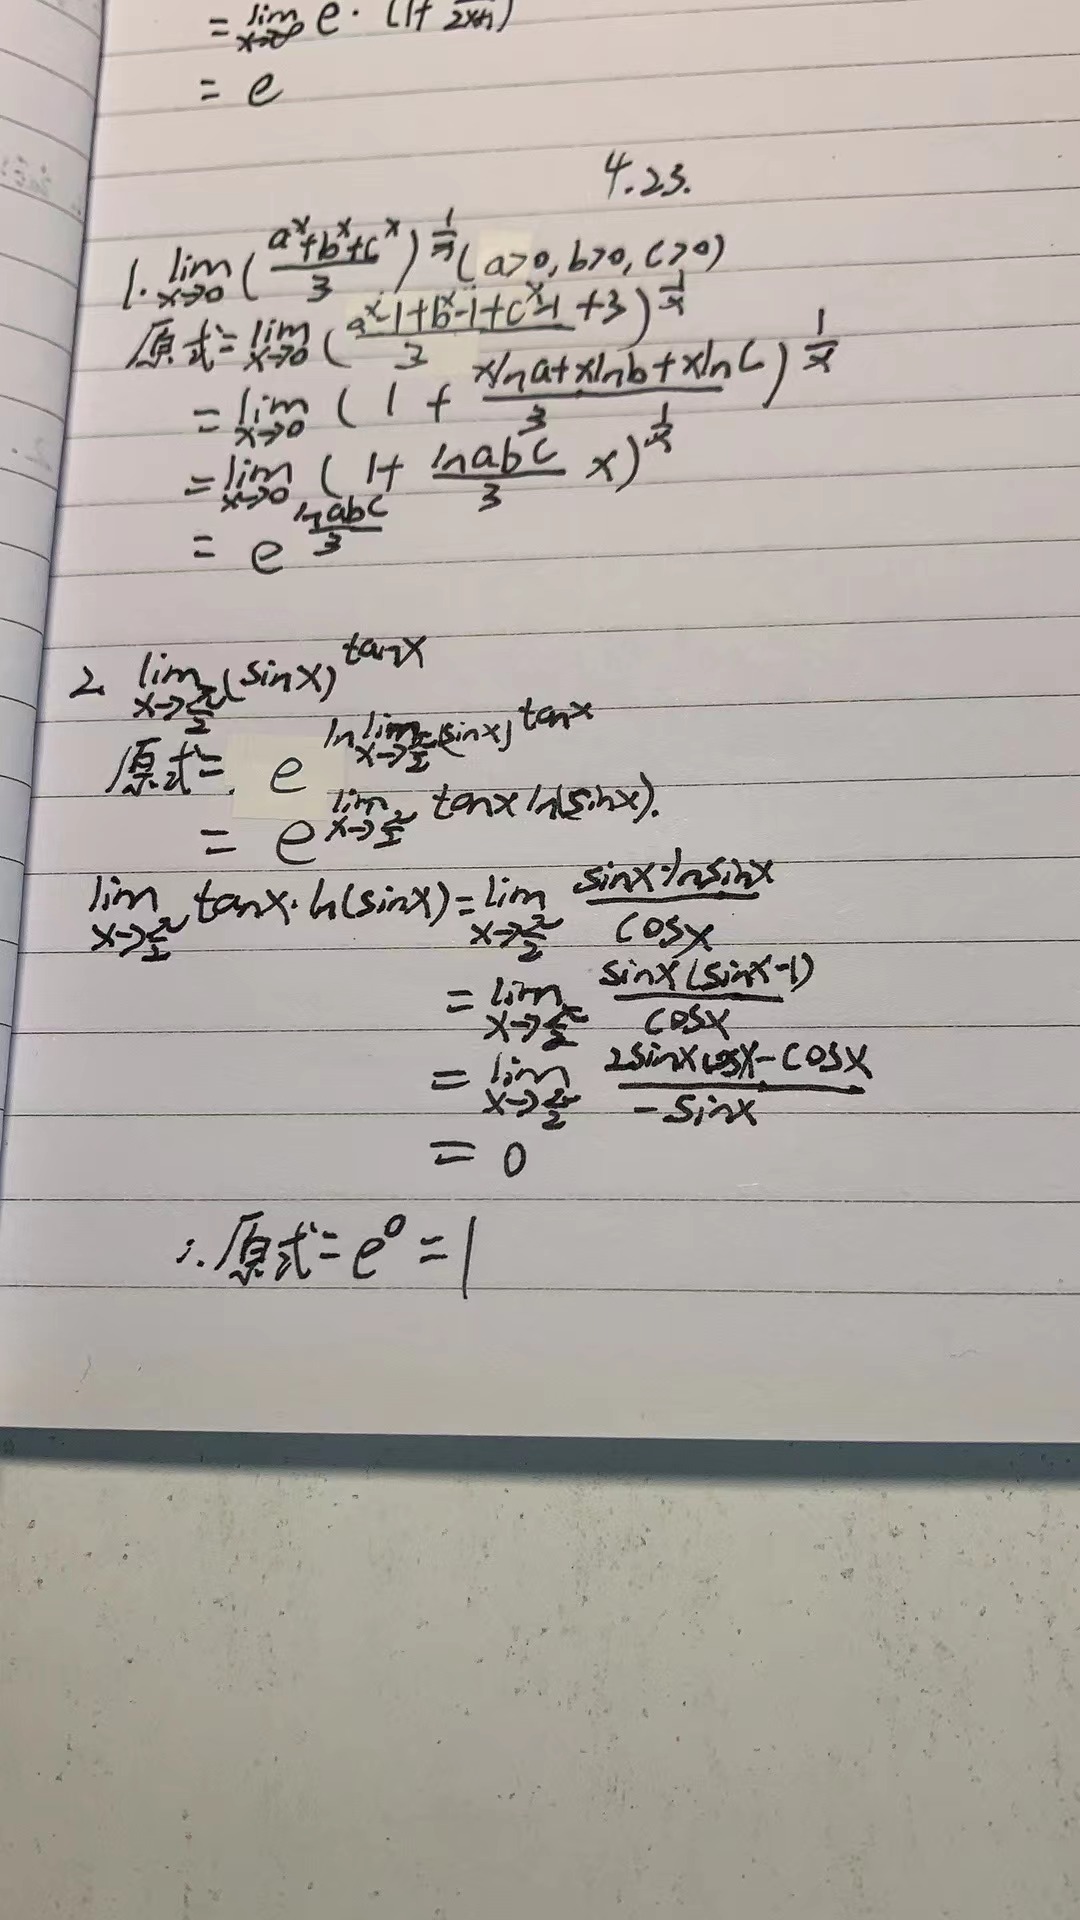 = lim x→∞ e · (1+ 1/2x+1)
= e
4.23.
1. lim x→0 (a^x+b^x+c^x / 3)^(1/x) (a>0, b>0, c>0)
原式= lim x→0 (a^x-1+b^x-1+c^x-1+3 / 3)^(1/x)
= lim x→0 (1 + xlna+xlnb+xlnc / 3)^(1/x)
= lim x→0 (1+ lnabc/3 x)^(1/x)
= e^(lnabc/3)
2. lim x→π/2 (sinx)^tanx
原式= e^(ln lim x→π/2 (sinx)^tanx)
= e^(lim x→π/2 tanx ln(sinx)).
lim x→π/2 tanx·ln(sinx) = lim x→π/2 sinx·lnsinx / cosx
= lim x→π/2 sinx(sinx-1) / cosx
= lim x→π/2 2sinxcosx-cosx / -sinx
= 0
∴原式= e^0 = 1